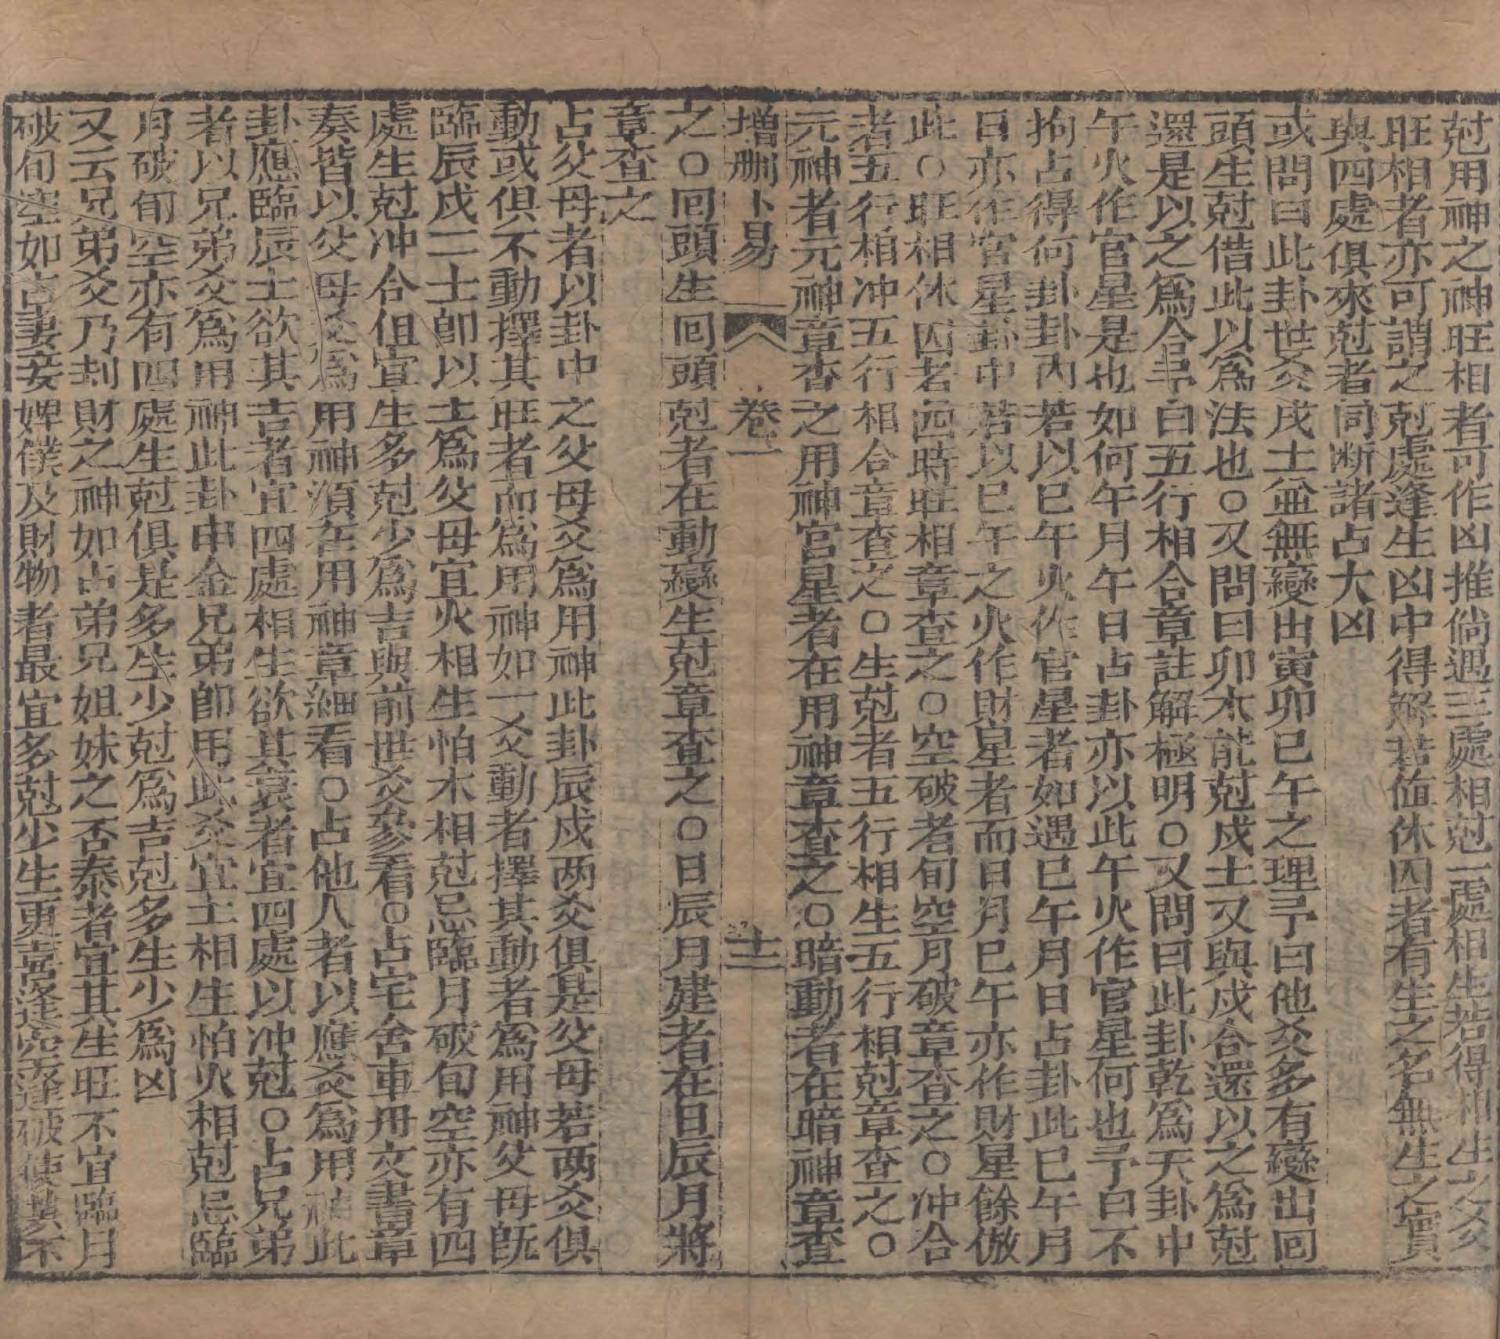 尅用神之神旺相者可作凶推倘遇三處相尅一處相生若得相生之爻
旺相者亦可謂之尅處逢生凶中得解若值休囚者有生之名無生之實
與四處俱來尅者同斷諸占大凶
或問曰此卦世爻戌土並無變出寅卯巳午之理予曰他爻多有變出回
頭生尅借此以爲法也○又問曰卯木能尅戌土又與戌合還以之爲尅
還是以之爲合予曰五行相合章註解極明○又問曰此卦乾爲天卦中
午火作官星是也如何午月午日占卦亦以此午火作官星何也予曰不
拘占得何卦卦內若以巳午火作官星者如遇巳午月日占卦此巳午月
日亦作官星卦中若以巳午之火作財星者而日月巳午亦作財星餘倣
此○旺相休囚者四時旺相章查之○空破者旬空月破章查之○冲合
者五行相冲五行相合章查之○生尅者五行相生五行相尅章查之○
元神者元神章查之用神官星者在用神章查之○暗動者在暗神章查
增刪卜易 卷一 十二
之○回頭生回頭尅者在動變生尅章查之○日辰月建者在日辰月將
章查之
占父母者以卦中之父母爻爲用神此卦辰戌两爻俱是父母若两爻俱
動或俱不動擇其旺者而爲用神如一爻動者擇其動者爲用神父母旣
臨辰戌二土卽以土爲父母宜火相生怕木相尅忌臨月破旬空亦有四
處生尅冲合但宜生多尅少爲吉與前世爻參看○占宅舍車舟文書章
奏皆以父母爻爲用神須在用神章細看○占他人者以應爻爲用神此
卦應臨辰土欲其吉者宜四處相生欲其衰者宜四處以冲尅○占兄弟
者以兄弟爻爲用神此卦申金兄弟卽用此爻宜土相生怕火相尅忌臨
月破旬空亦有四處生尅俱是多生少尅爲吉尅多生少爲凶
又云兄弟爻乃刦財之神如占弟兄姐妹之否泰者宜其生旺不宜臨月
破旬空如占妻妾婢僕及財物者最宜多尅少生更喜逢空逢破使其不